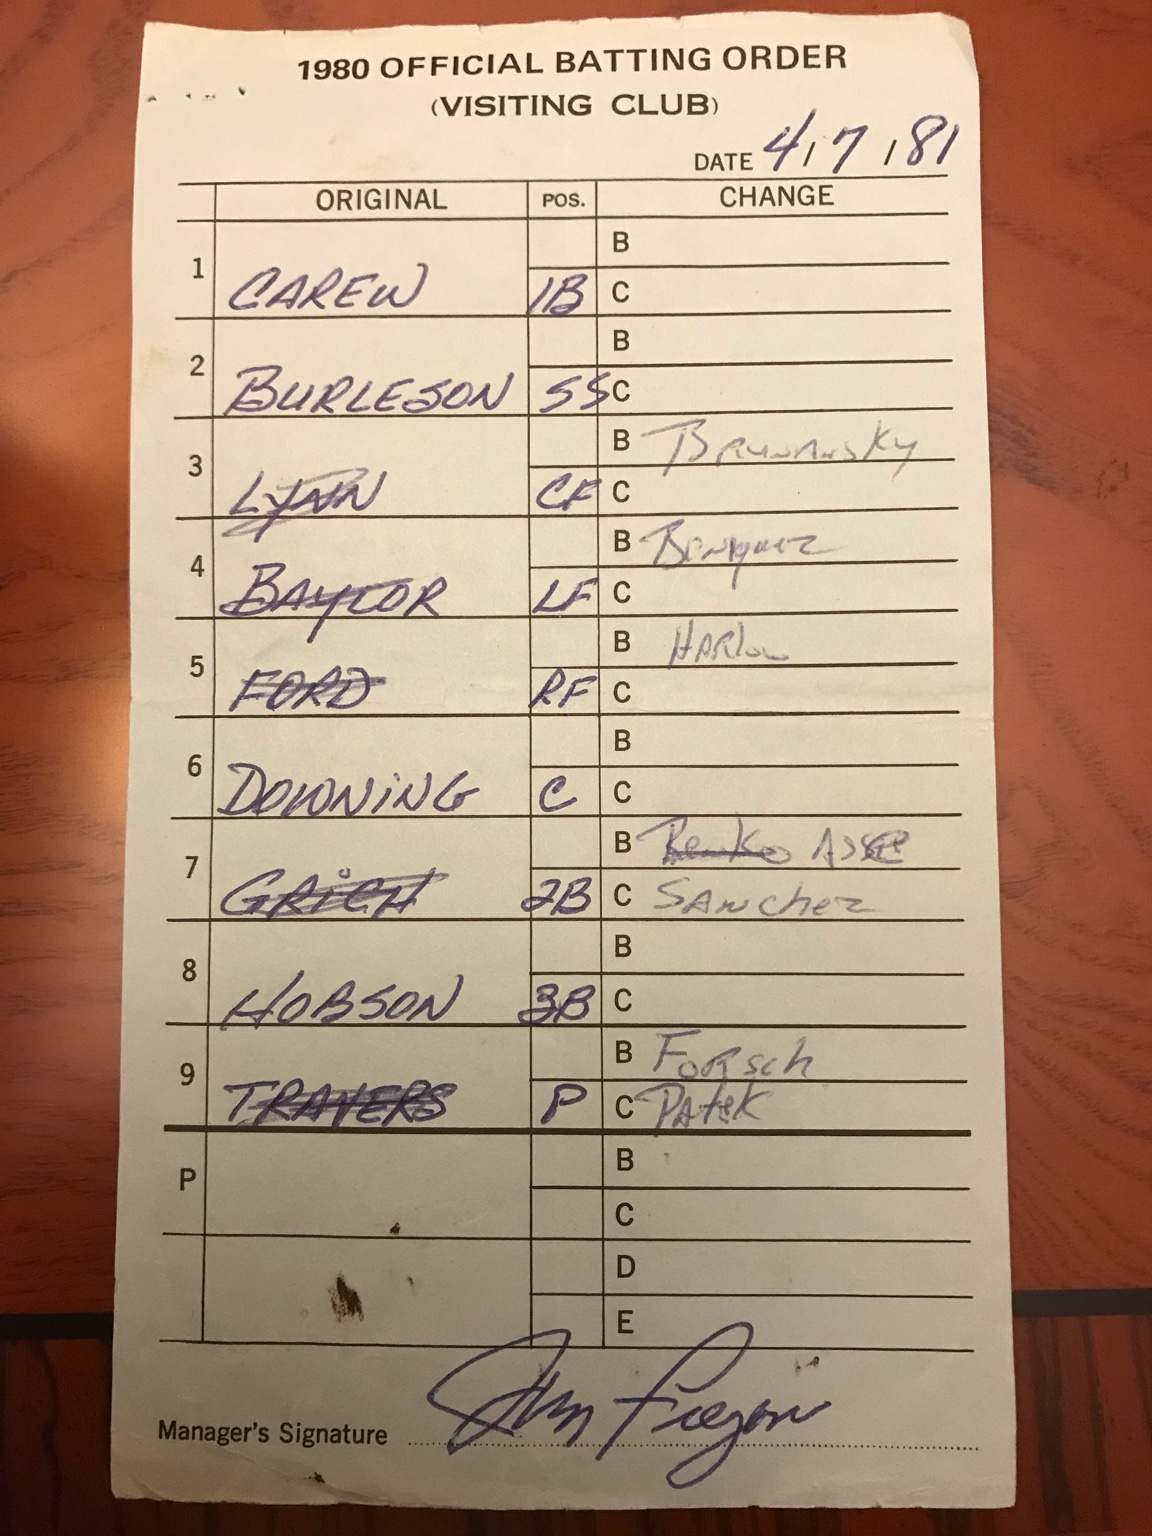 1980 OFFICIAL BATTING ORDER
(VISITING CLUB)
DATE 4/7/81
ORIGINAL POS. CHANGE
1 CAREW 1B B
C
2 BURLESON SS B
C
3 LYNN CF B BRUNANSKY
C
4 BAYLOR LF B Beniquez
C
5 FORD RF B HARlow
C
6 DOWNiNG C B
C
7 GRiCH 2B B
C SANchez
8 HOBSON 3B B
C
9 TRAVERS P B FORSch
C PAtek
P B
C
D
E
Manager's Signature Jim Fregosi